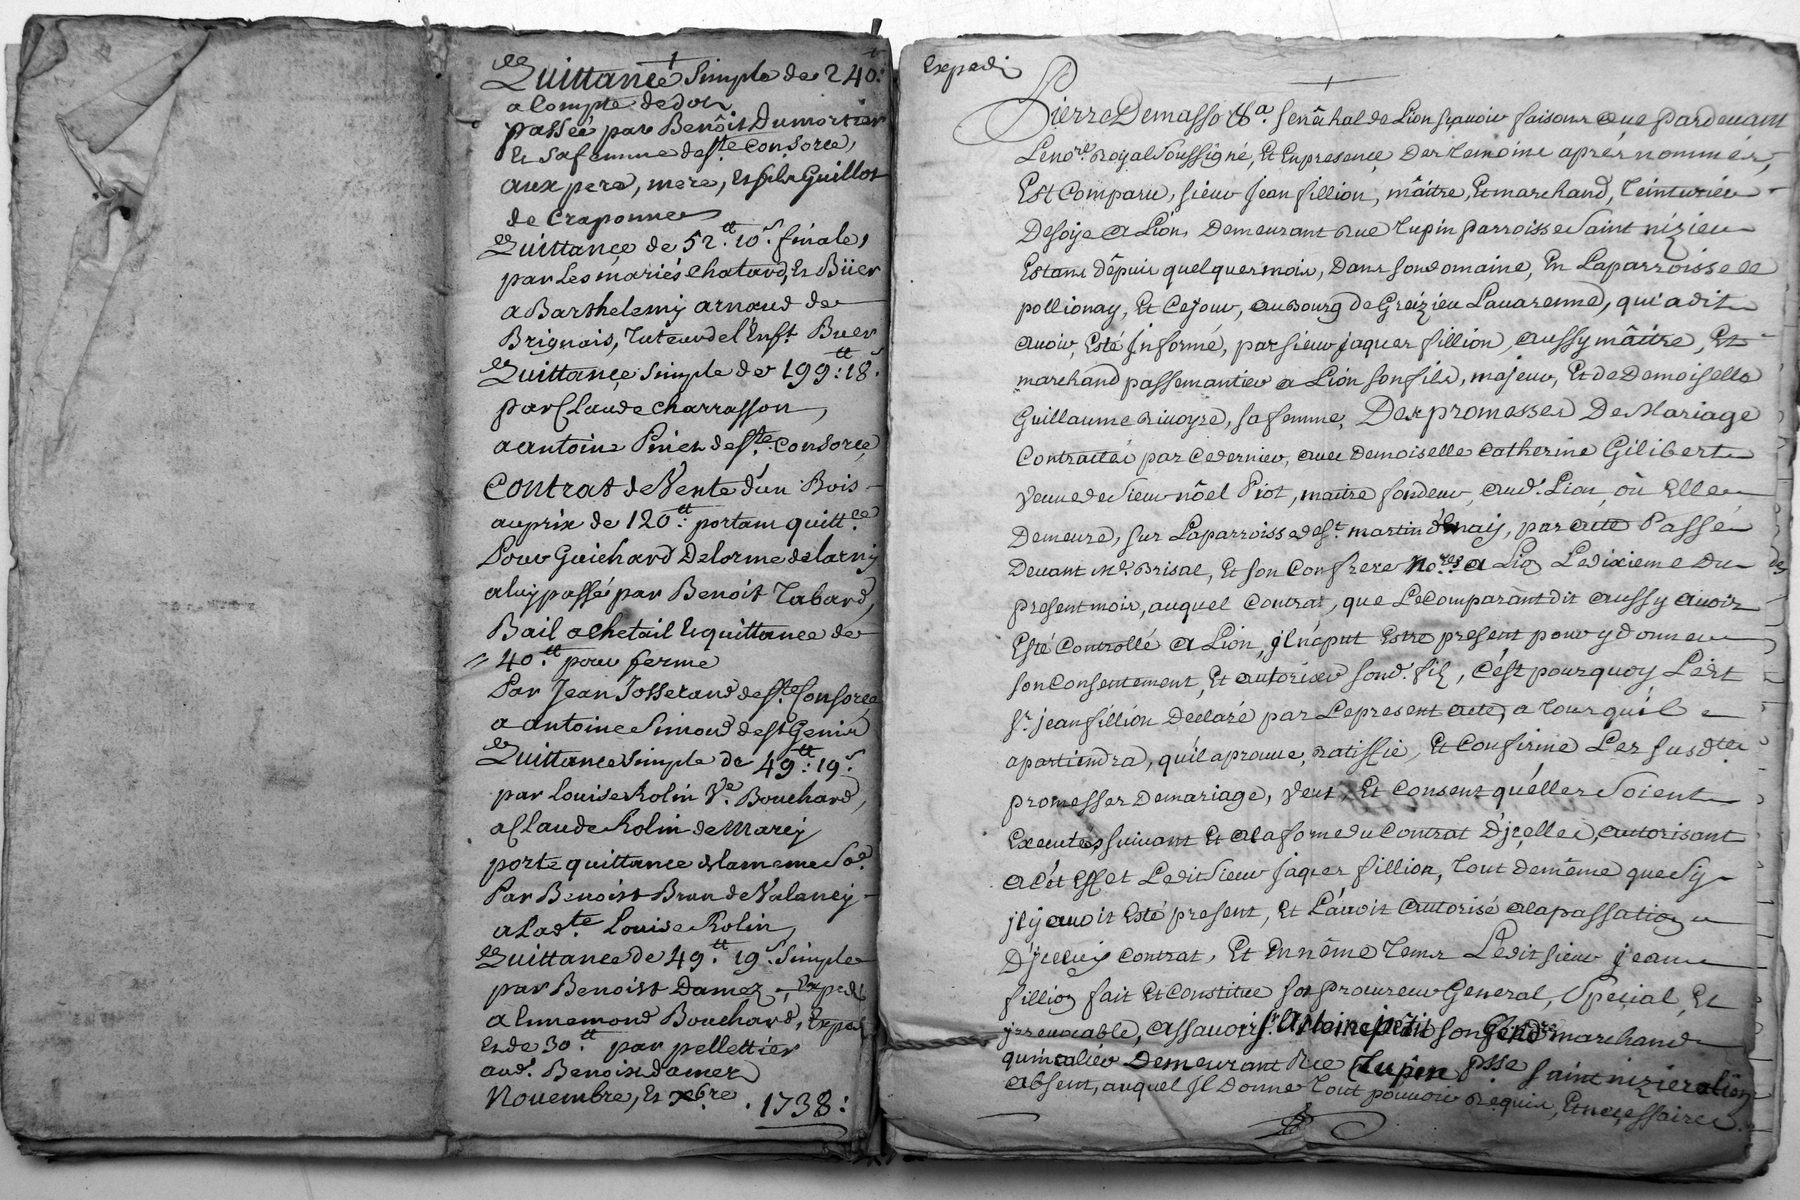 Quittance simple de 240.tt
a Compte de dot
passée par Benôit Dumortier
Et sa femme de ste Consorce,
aux pere, mere, Et fils Guillot
de Craponne
Quittance de 52.tt 10.s finale,
par Les mariés Chatard, Et Büer
a Barthelemy arnaud de
Brignais, Tuteur de l'Enft. Buer
Quittance simple de 199.tt:18.s
par Claude Charrasson,
a antoine Piney de Ste Consorce
Contrat de Vente d'un Bois
au prix de 120.tt: portant quitt.ce
Pour Guichard Delorme de
a luy passée par Benoit Tabard,
Bail a Chetail Et quittance de
40.tt pour ferme
Par Jean Josserand de ste. Consorce
a antoine Simond de st Genis
Quittance simple de 49.tt: 19.s
par Louise Rolin Ve. Bouchard,
a Claude Rolin de Marcy
porte quittance de la meme So.e
Par Benoist Brun de Valency
a Lad.te Louise Rolin,
Quittance de 49.tt 19.s simple
par Benoist Damez, Exped
a Ennemond Bouchard, Exped
Et de 30.tt par pellettier
aud. Benoist damez
Novembre, Et xbre. 1738:
Expedi
Pierre Demasso &a. senêchal de Lion sçavoir faisons que pardevant
Le nore. Royal soussigné, Et En presence Des Temoins aprés nommés,
Est Comparu, sieur Jean fillion, mâitre, Et marchand, Teinturier
De soye a Lion, Demeurant Rue Tupin parroisse saint nizier
Estant dêpuis quelques mois, dans son domaine, En La parroisse de
pollionay, Et Ce jour, au Bourg de Grêizieu Lavarenne, qui a dit
avoir, Esté Jnformé, par sieur jaques fillion, aussy mâitre, Et
marchand passemantier a Lion son fils, majeur, Et de Demoiselle
Guillaume Rivoyre, sa femme, Des promesses De Mariage
Contractées par Ce dernier, avec Demoiselle Catherine Gilibert
Veuve de sieur nôel Piot, maitre fondeur, aud. Lion, où Elle
Demeure, sur La parroisse de st. martin d'Enay, par acte Passé
Devant Me. Brisae, Et son Confrere No.res a Lion Le dixieme Du
present mois, auquel Contrat, que Le Comparant dit aussy avoir
Esté Controllé a Lion, jl n'a put Estre present pour y donner
son Consentement, Et autoriser sond. fils, c'est pourquoy Ledt
sr. jean fillion Declare par Le present acte, a Tous qu'il
apartiendra, qu'il aprouve, ratiffie, Et Confirme Les susdtes
promesses De mariage, Veut, Et Consent qu'elles soient
Executées suivant Et a la forme du Contrat D'jcelles, autorisant
a Cét Effet Ledit sieur jaques fillion, Tout de même que s'y
jl y avoit Esté present, Et L'avoit autorisé a la passation
D'jceluy Contrat, Et En même Tems Ledit sieur jean
fillion fait Et Constitue son procureur General, special, Et
jrrevocable, assavoir sr. Antoine petit son Gendre marchand
quincalier Demeurant Rue Tupin psse saint nizier a lion
absent, auquel Jl Donne Tout pouvoir Requis, Et necessaire